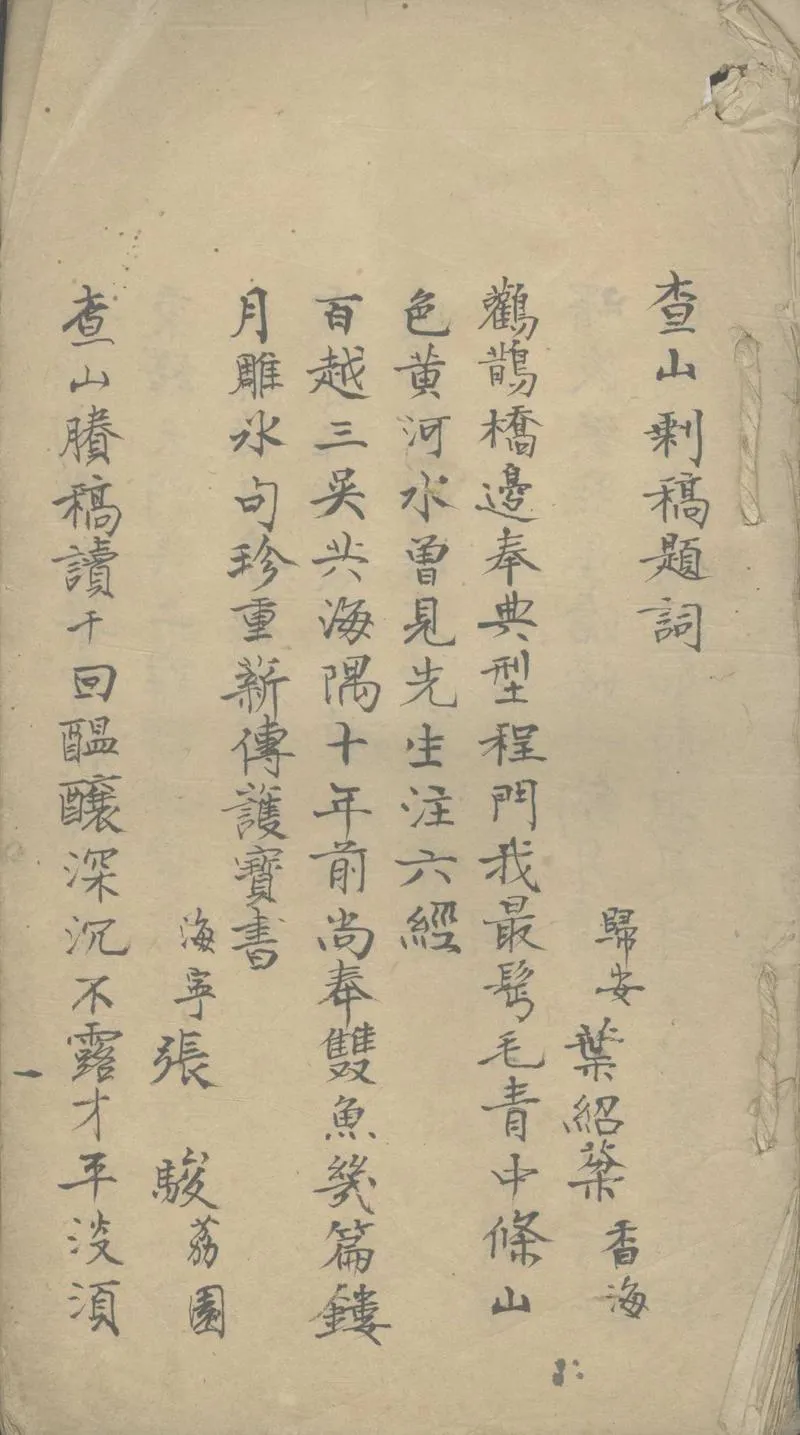 查山剩稿題詞
歸安葉紹棻香海
鸛鵲橋邊奉典型程門我最髩毛青中條山
色黄河水曽見先生注六經
百越三吳共海隅十年前尚奉雙魚幾篇鏤
月雕氷句珍重薪傳護寶書
海寧張駿荔園
查山賸稿讀千回醖釀深沉不露才平淡須
一